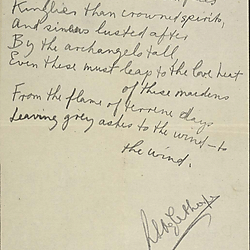 Kindlier than crowned spirits,
And sinners lusted after
By the archangels tall
Even these must leap to the love heat
of these maidens
From the flame of terrene days
Leaving grey ashes to the wind — to
the wind.